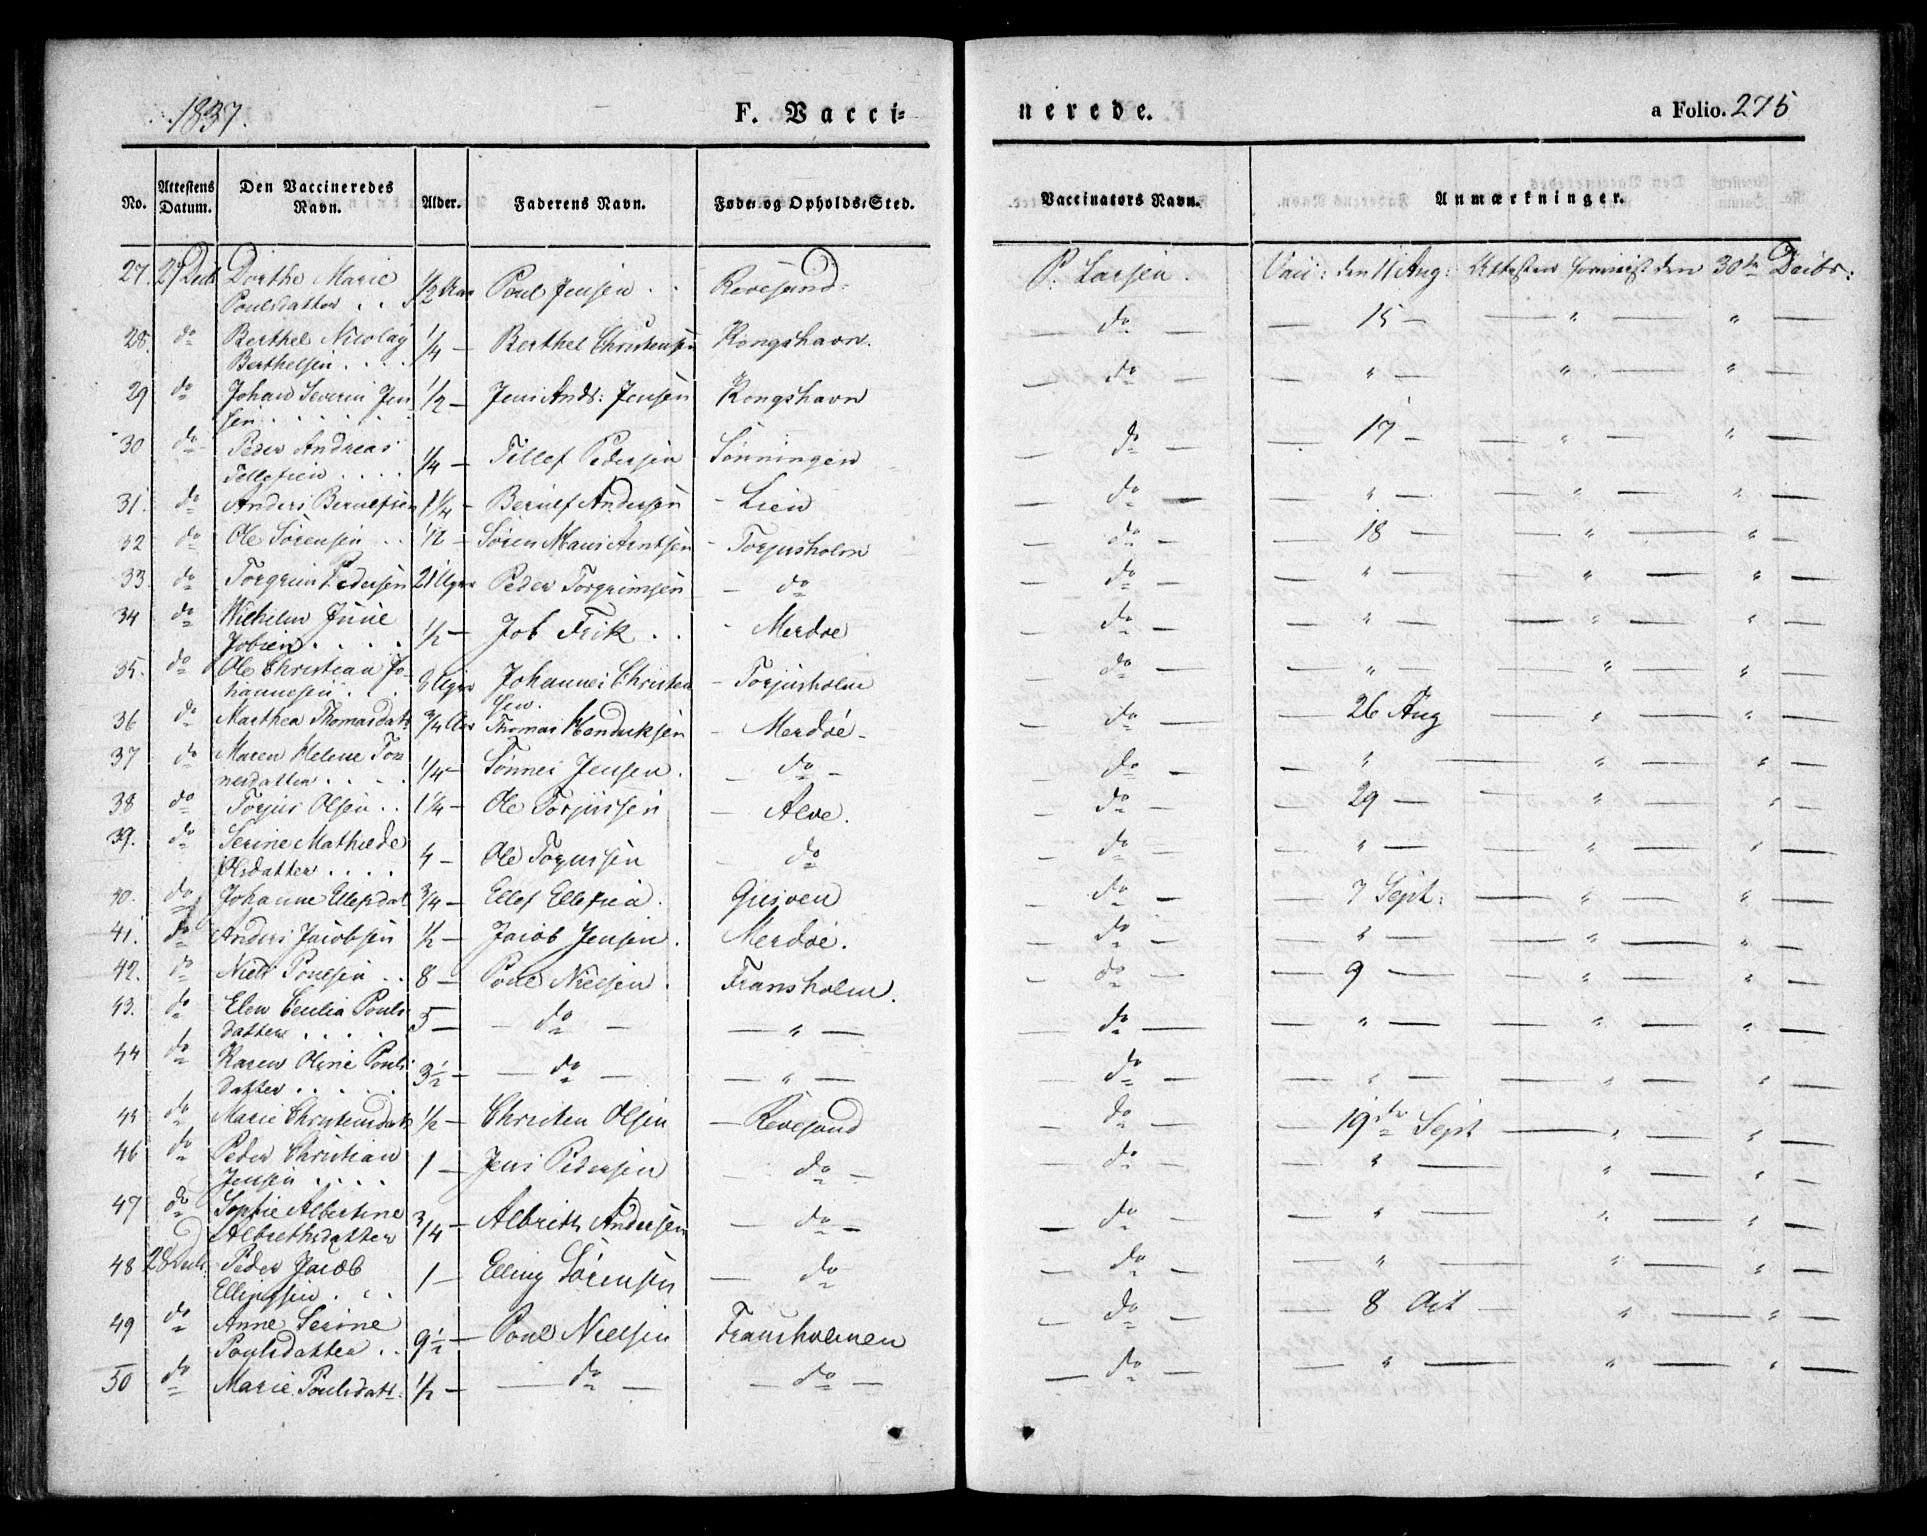 1837.
F. Vacci-
nerede.
a Folio. 275
No. Attestens Datum. Den Vaccineredes Navn. Alder. Faderens Navn. Føde- og Opholds-Sted. Vaccinators Navn. Anmærkninger.
27. 27 Dorthe Marie Poulsdatter . . 1/2 Aar Poul Jensen . . Revesund. P. Larsen. Vacc: den 11 Aug: Attesten den 30te Decbr:
28. do Berthel Nicolay Berthelsen . . . . 1/4 — Berthel Christensen Kongshavn. — do — — 15 — — " — " —
29 do Johan Severin Jensen . . . . . 1/2 — Jens Ands: Jensen Kongshavn — do — — " — — " — " —
30 do Peder Andreas Tellefsen . . . . 1/4 — Tellef Pedersen Sønningen — do — — 17 — — " — " —
31. do Anders Berulfsen 1 1/4 — Berulf Andersen - Lien — do — — " — — " — " —
32 do Ole Sørensen . . 1/2 — Søren Mausi Arntsen - Torjusholm — do — — 18 — — " — " —
33. do Torgrim Pedersen 21 Uger Peder Torgrimsen — do — do — — " — — " — " —
34 do Wilhelm June Jobsen . . . . 1/2 — Job Frik . . - Merdøe — do — — " — — " — " —
35. do Ole Christian Johannesen . . 8 Uger Johannes Christensen. - Torjusholm — do — — " — — " — " —
36 do Marthea Thomasdatt 3/4 Aar Thomas Hendriksen - Merdøe - — do — — 26 Aug — " — " —
37 do Maren Helene Tønnesdatter . . . . 1/4 — Tønnes Jensen . — do — — do — — " — — " — " —
38 do Torjus Olsen . . 1 1/4 — Ole Torjussen — Alve. — do — — 29 — — " — " —
39. do Serine Mathilde Olsdatter . . . . 4 — Ole Torjussen — do — do — — " — — " — " —
40. do Johanne Ellefsdat 3/4 — Ellef Ellefsen . Gjesven — do — — 7 Sept: — " — " —
41. do Anders Jacobsen 1/2 — Jacob Jensen . Merdøe. — do — — " — — " — " —
42. do Niels Poulsen . . 8 — Poul Nielsen . Fransholm. — do — — 9 — — " — " —
43. do Elen Cecilia Poulsdatter . . . . 5 — — do — — " — — do — — " — — " — " —
44 do Karen Oline Poulsdatter . . . . . 3 1/2 — — do — — " — — do — — " — — " — " —
45 do Marie Christensdat 1/2 — Christen Olsen — Revesand — do — — 19de Sept — " — " —
46 do Peder Christian Jensen . . . . 1 — Jens Pedersen — do — — do — — " — — " — " —
47 do Sophie Albertine Albrethsdatter 3/4 — Albreth Andersen — do — — do — — " — — " — " —
48 28 Peder Jacob Ellingsen . . . 1 — Elling Sørensen — do — do — — " — — " — " —
49 do Anne Serine Poulsdatter . . 9 1/2 — Poul Nielsen Fransholmen — do — — 8 Oct — " — " —
50 do Marie Poulsdatt. 1/2 — — do — — do — — do — — " — — " — " —